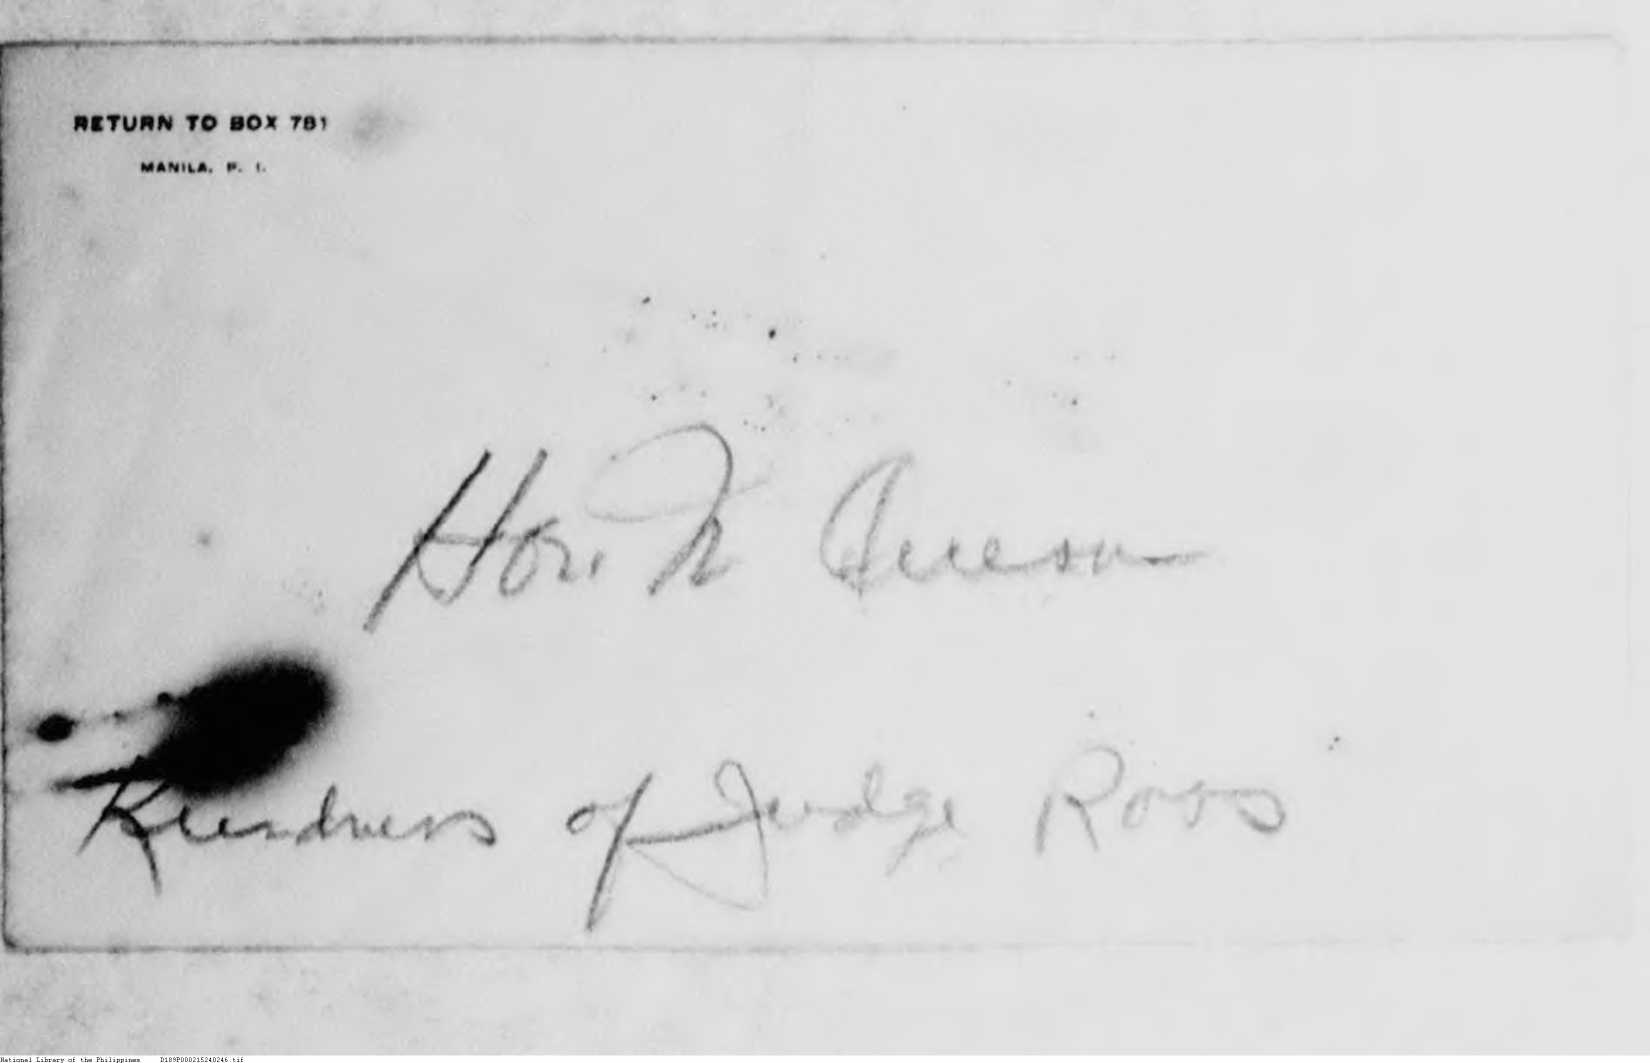 RETURN TO BOX 781
MANILA. P. I.
Hon M Queson
Kindness of Judge Ross
National Library of the Philippines D189P000215240246.tif